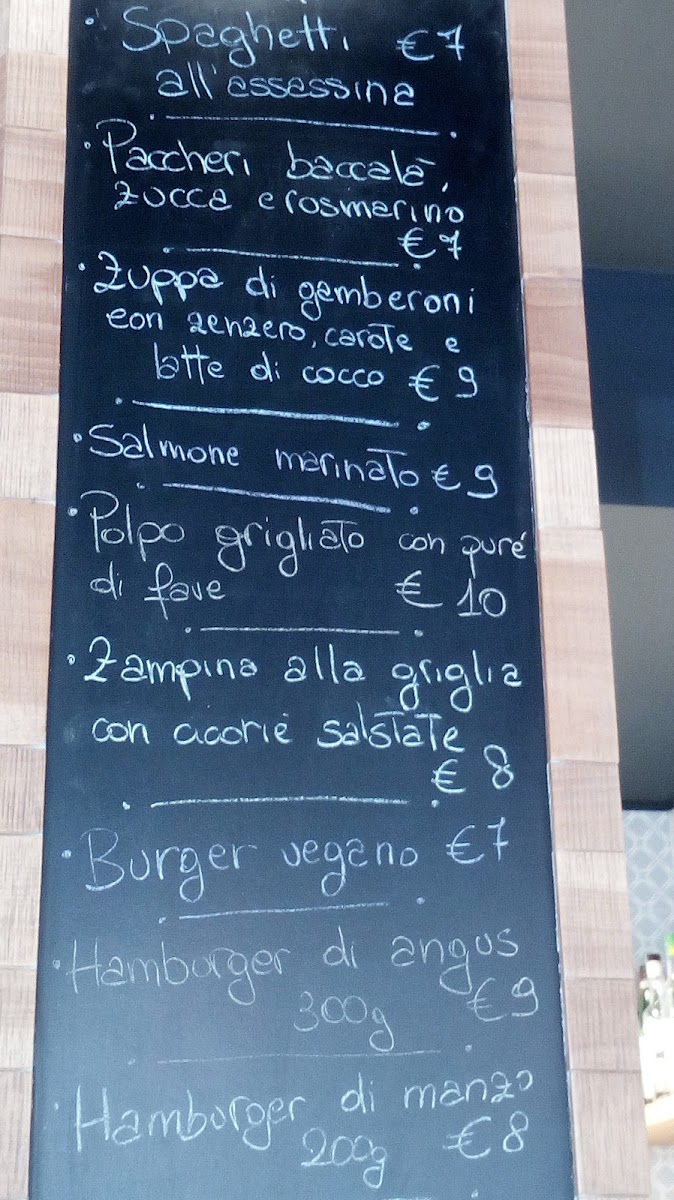 · Spaghetti €7
all'assassina
· Paccheri baccalà,
zucca e rosmarino
€7
· Zuppa di gamberoni
con zenzero, carote e
latte di cocco €9
· Salmone marinato €9
· Polpo grigliato con puré
di fave €10
· Zampina alla griglia
con cicorie salstate
€8
· Burger vegano €7
· Hamburger di angus
300g €9
· Hamburger di manzo
200g €8